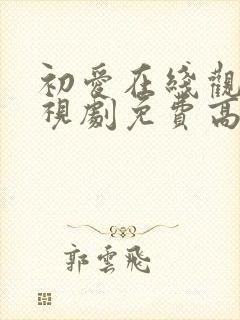 初愛在綫觀
視劇免費高
郭雲飛